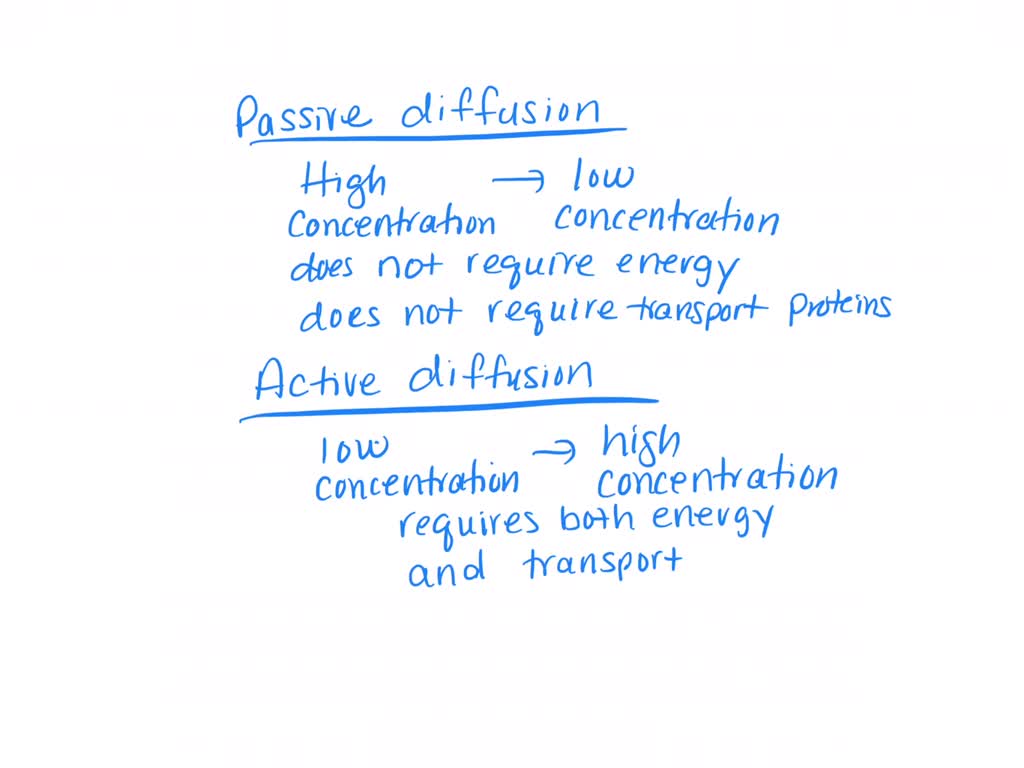 Passive diffusion
High → low
concentration concentration
does not require energy
does not require transport proteins
Active diffusion
low → high
concentration concentration
requires both energy
and transport